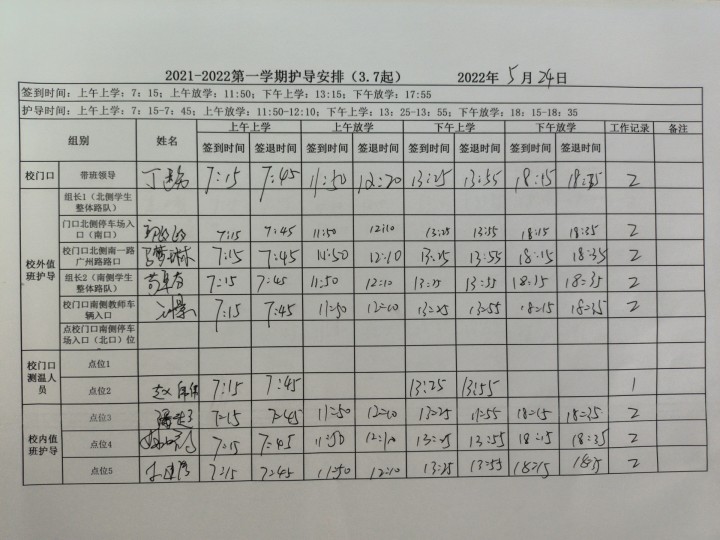 2021-2022第一学期护导安排（3.7起） 2022年 5 月 24 日
签到时间：上午上学：7：15；上午放学：11:50；下午上学：13:15；下午放学：17:55
护导时间：上午上学：7：15-7：45；上午放学：11:50-12:10；下午上学：13：25-13：55；下午放学：18：15-18：35
组别 姓名 上午上学 上午放学 下午上学 下午放学 工作记录 备注
签到时间 签退时间 签到时间 签退时间 签到时间 签退时间 签到时间 签退时间
校门口 带班领导 7:15 7:45 11:50 12:20 13:25 13:55 18:15 18:35 2
校外值班护导
组长1（北侧学生
整体路队）
门口北侧停车场入
口（南口） 7:15 7:45 11:50 12:10 13:25 13:55 18:15 18:35 2
校门口北侧南一路
广州路路口 7:15 7:45 11:50 12:10 13:25 13:55 18:15 18:35 2
组长2（南侧学生
整体路队） 7:15 7:45 11:50 12:10 13:25 13:55 18:15 18:35 2
校门口南侧教师车
辆入口 7:15 7:45 11:50 12:10 13:25 13:55 18:15 18:35 2
点校门口南侧停车
场入口（北口）位
校门口
测温人
员
点位1
点位2 7:15 7:45 13:25 13:55 1
校内值
班护导
点位3 7:15 7:45 11:50 12:10 13:25 11:55 18:15 18:35 2
点位4 7:15 7:45 11:50 12:10 13:25 13:55 18:15 18:35 2
点位5 7:15 7:45 11:50 12:10 13:25 13:55 18:15 18:35 2